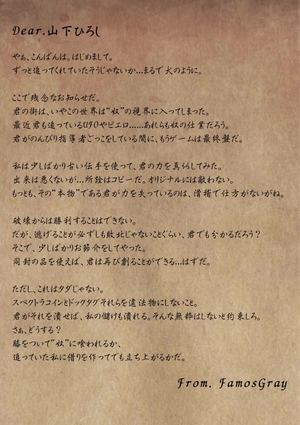 Dear.山下ひろし
やぁ、こんばんは。はじめまして。
ずっと追ってくれていたそうじゃないか…まるで犬のように。
ここで残念なお知らせだ。
君の街は、いやこの世界は“奴”の視界に入ってしまった。
最近君も追っているUFOやピエロ……あれらも奴の仕業だろう。
君がのんびり指導者ごっこをしている間に、もうゲームは最終盤だ。
私は少しばかり古い伝手を使って、君の力を真似してみた。
出来は悪くないが…所詮はコピーだ。オリジナルには敵わない。
もっとも、その“本物”である君が力を失っているのは、滑稽で仕方がないがね。
破壊からは勝利することはできない。
だが、逃げることが必ずしも敗北じゃないことぐらい、君でも分かるだろう？
そこで、少しばかりお節介をしてやった。
同封の品を使えば、君は再び創ることができる…はずだ。
ただし、これはタダじゃない。
スペクトラコインとドッグタグそれらを違法物にしないこと。
君がそれを潰せば、私の儲けも潰れる。そんな無粋はしないと約束しろ。
さぁ、どうする？
膝をついて“奴”に喰われるか、
追っていた私に借りを作ってでも立ち上がるかだ。
From. FamosGray